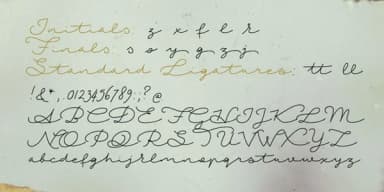 Initials: z x f l r
Finals: s o y g z j
Standard Ligatures: tt ll
!&*,.0123456789:;?@
ABCDEFGHIJKLM
NOPQRSTUVWXYZ
abcdefghijklmnopqrstuvwxyz